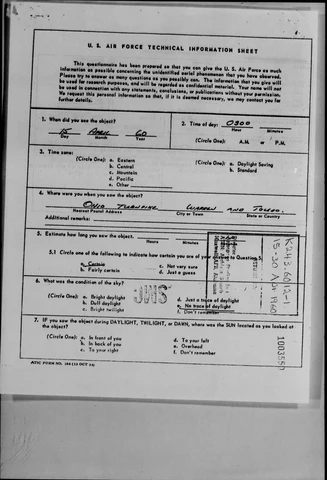 U. S. AIR FORCE TECHNICAL INFORMATION SHEET
This questionnaire has been prepared so that you can give the U. S. Air Force as much
information as possible concerning the unidentified aerial phenomenon that you have observed.
Please try to answer as many questions as you possibly can. The information that you give will
be used for research purposes, and will be regarded as confidential material. Your name will not
be used in connection with any statements, conclusions, or publications without your permission.
We request this personal information so that, if it is deemed necessary, we may contact you for
further details.
1. When did you see the object?
15 April 60
Day Month Year
2. Time of day: 0300
Hour Minutes
(Circle One): A.M. or P.M.
3. Time zone:
(Circle One): a. Eastern
b. Central
c. Mountain
d. Pacific
e. Other
(Circle One): a. Daylight Saving
b. Standard
4. Where were you when you saw the object?
Ohio Turnpike Warren and
Nearest Postal Address City or Town State or Country
Additional remarks:
5. Estimate how long you saw the object.
Hours Minutes
5.1 Circle one of the following to indicate how certain you are of your answer to Question 5.
a. Certain
b. Fairly certain
c. Not very sure
d. Just a guess
6. What was the condition of the sky?
(Circle One): a. Bright daylight
b. Dull daylight
c. Bright twilight
d. Just a trace of daylight
e. No trace of daylight
f. Don't remember
7. IF you saw the object during DAYLIGHT, TWILIGHT, or DAWN, where was the SUN located as you looked at
the object?
(Circle One): a. In front of you
b. In back of you
c. To your right
d. To your left
e. Overhead
f. Don't remember
ATIC FORM NO. 164 (13 OCT 54)
K243.6012-1
15-30 Apr 1960